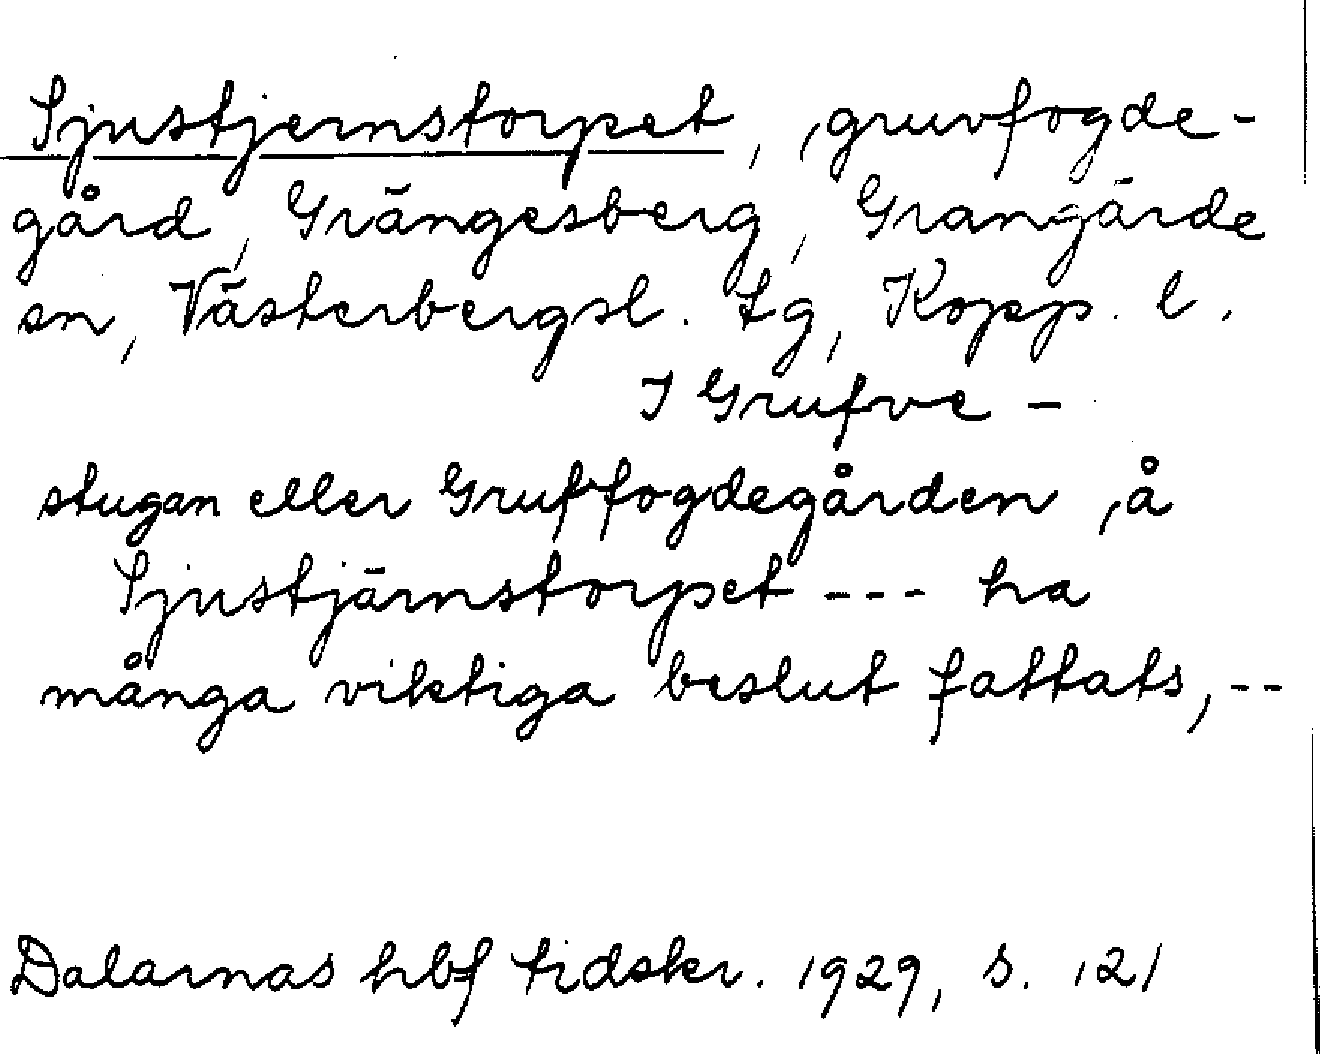 Sjustjernstorpet, gruvfogde-
gård, Grängesberg, Grangärde
sn, Västerbergsl. tg, Kopp. l.
I Grufve -
stugan eller Gruffogdegården, å
Sjustjärnstorpet --- ha
många viktiga beslut fattats, --
Dalarnas hbf tidskr. 1929, s. 121